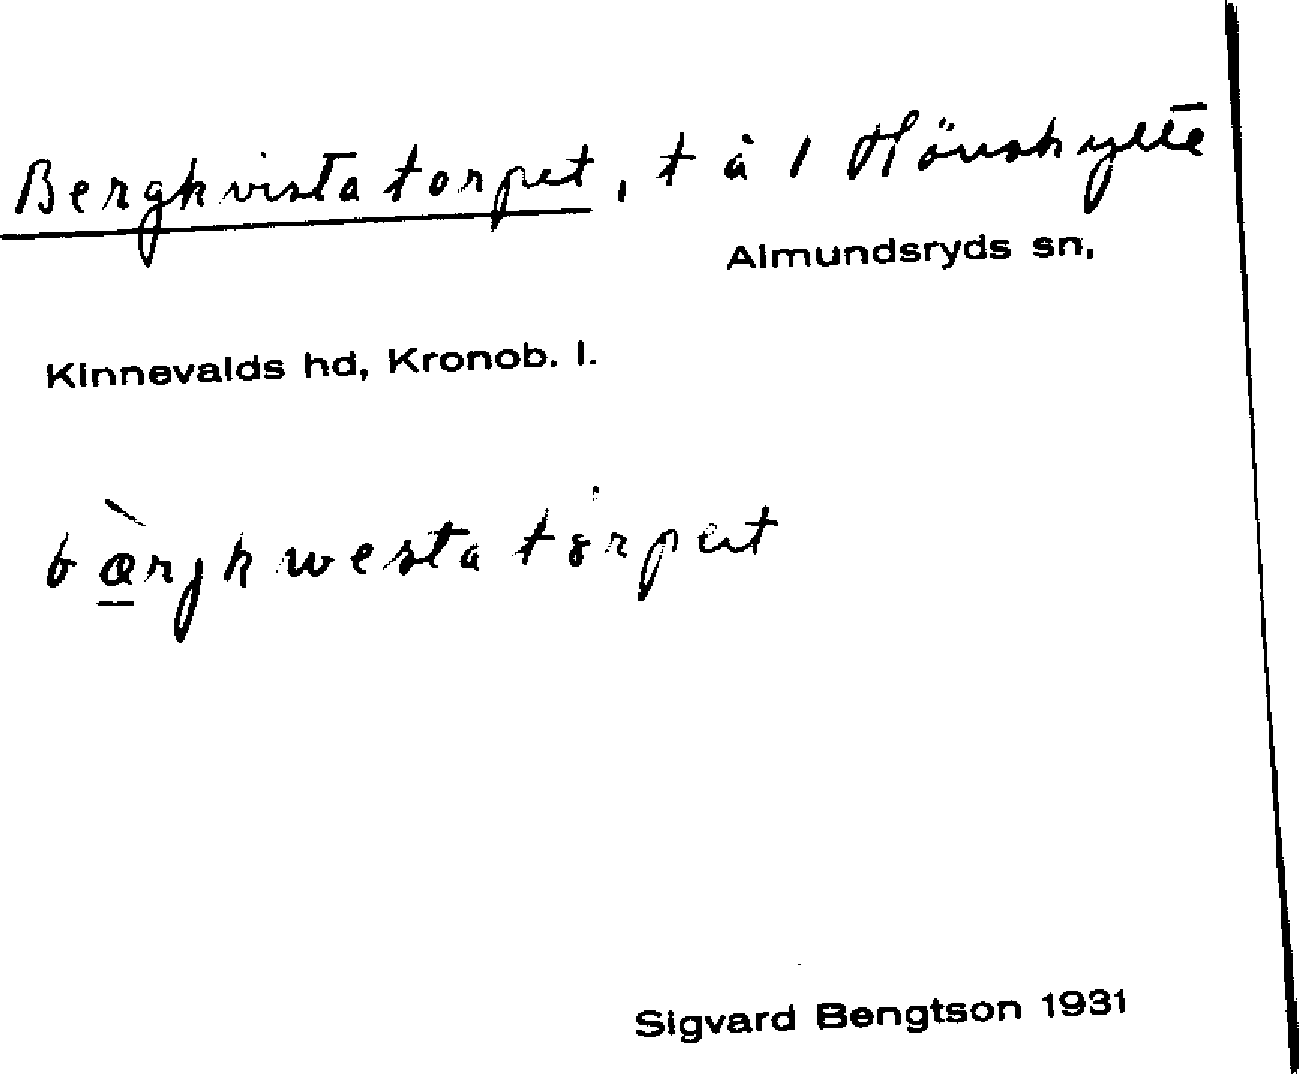 Bergkvistatorpet, t å 1 Hönshylte
Almundsryds sn,
Kinnevalds hd, Kronob. l.
bærjkwestatorpet
Sigvard Bengtson 1931